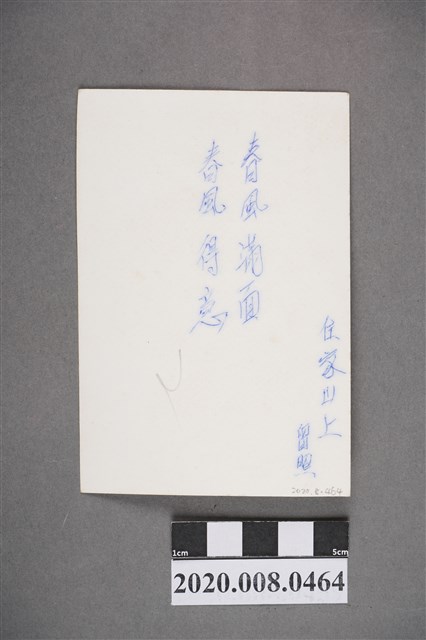 住家山上
留照
春風滿面
春風得意
2020.8.464
1cm 5cm
2020.008.0464